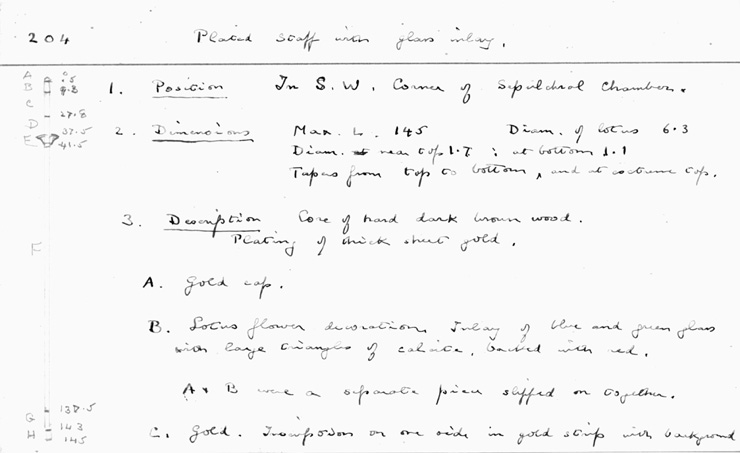 204 Plated staff with glass inlay.
A .5
B 9.8
C
- 27.8
D 37.5
E 41.5
F
G 137.5
143
H 145
1. Position In S.W. Corner of Sepulchral Chamber.
2. Dimensions Max. L. 145 Diam. of lotus 6.3
Diam. near top 1.7 ; at bottom 1.1
Tapers from top to bottom, and at extreme top.
3. Description Core of hard dark brown wood.
Plating of thick sheet gold.
A. Gold cap.
B. Lotus flower decoration, Inlay of blue and green glass
with large triangles of calcite, backed with red.
A + B were a separate piece slipped on together.
C. Gold. Inscription on one side in gold strip with background